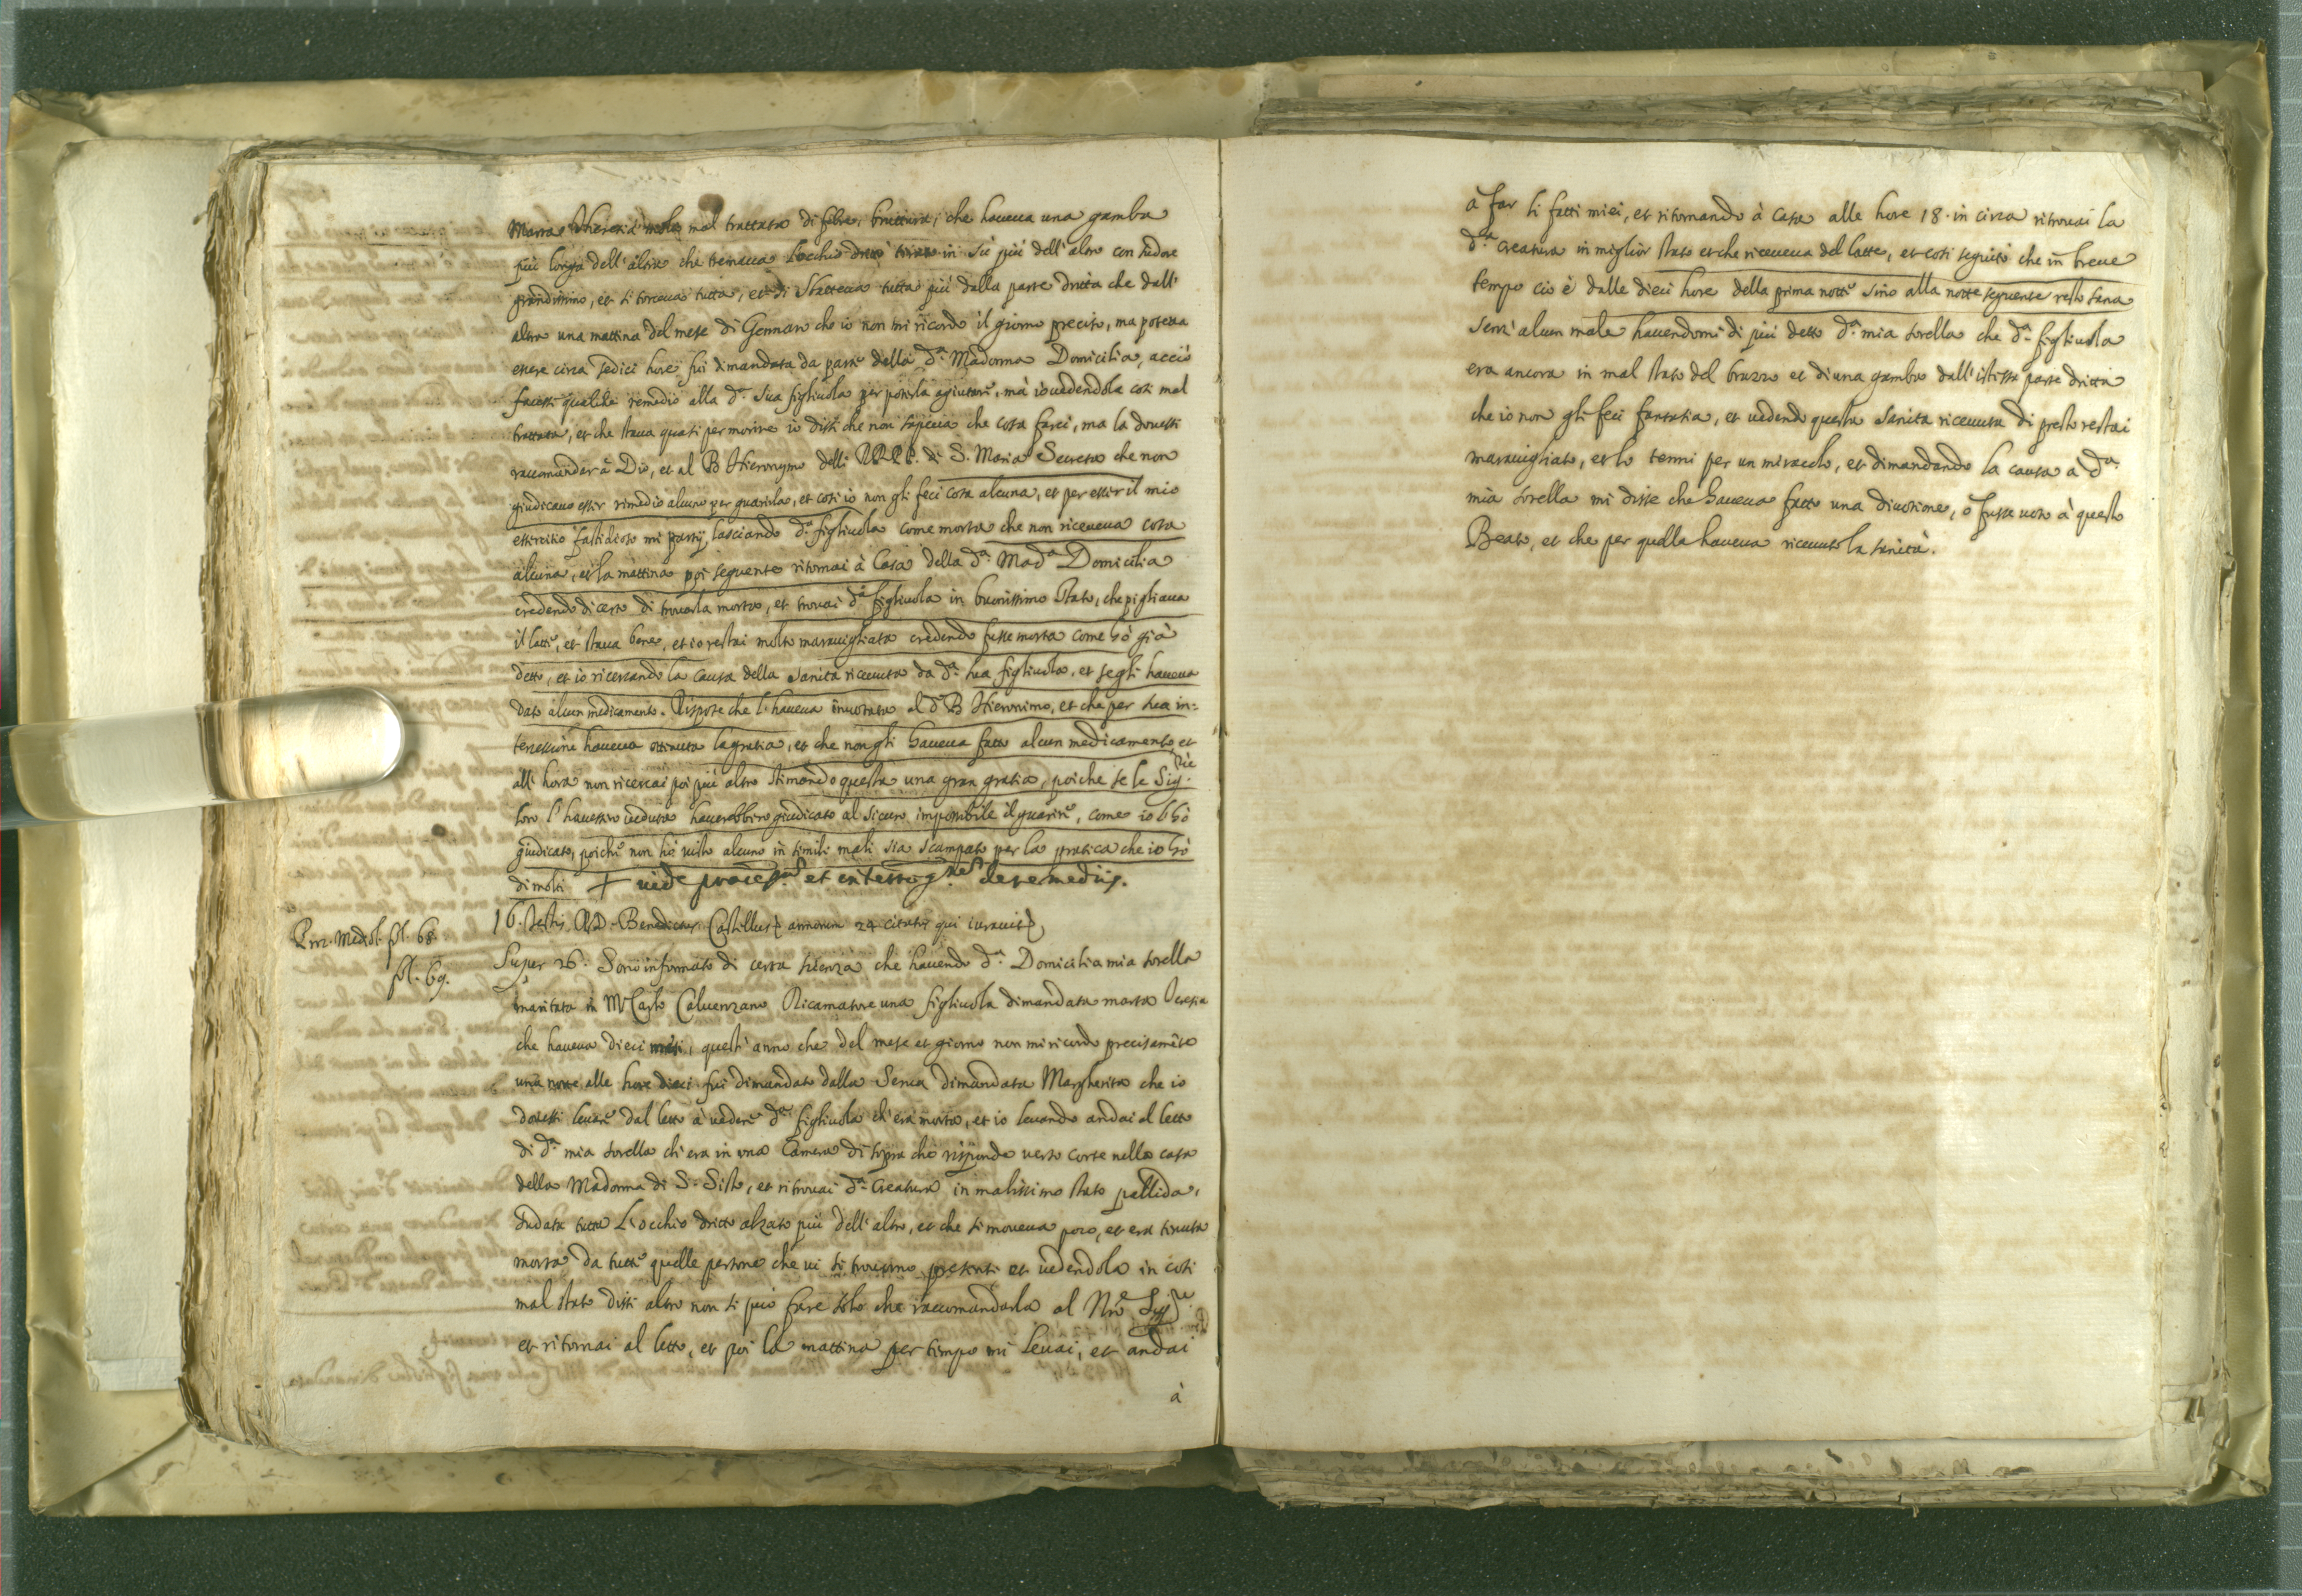 Marta Theresia molto mal trattata di febre, bruttura, che haveva una gamba
più longa dell'altra che tremava l'occhio dritto tirato in sù più dell'altro con sudore
grandissimo, et si torceva tutta, et di sbatteva tutta più dalla parte dritta che dall'
altra una mattina del mese di Gennaro che io non mi ricordo il giorno preciso, ma poteva
essere circa sedici hore fui dimandata da parte della d.ª Madonna Domicilia, acciò
facessi qualche remedio alla d.ª sua figliuola per poterla agiutare, mà io vedendola così mal
trattata, et che stava quasi per morire io dissi che non sapeva che cosa farci, ma la dovessi
raccomandar à Dio, et al B Hieronymo delli RR. PP. di S. Maria Secreta che non
giudicavo esser rimedio alcuno per guarirla, et così io non gli feci cosa alcuna, et per esser il mio
essercitio fastidioso mi partij, lasciando d.ª figliuola come morta che non riceveva cosa
alcuna, et la mattina poi seguente ritornai à Casa della d.ª Mad.ª Domicilia
credendo di certo di trovarla morta, et trovai d.ª figliuola in buonissimo stato, che pigliava
il latte, et stava bene, et io restai molto maravigliata credendo fusse morta come hò già
detto, et io ricercando la causa della sanità ricevuta da d.ª sua figliuola, et se gli haveva
dato alcun medicamento. Rispose che l'haveva invotata al d.º B Hieronimo, et che per sua in=
tercessione haveva ottenuta la gratia, et che non gli haveva fatto alcun medicamento, et
all'hora non ricercai poi più altro stimando questa una gran gratia, poiche se le Sig.rie
loro l'havessero veduta haverebbero giudicato al sicuro impossibile il guarire, come io l'hò
giudicato, poiche non hò visto alcuno in simili mali sia scampato per la pratica che io hò
di molti + vide processum et interrog.nes de remediis.
Pro. Mediol. fol. 68.
16. testis D. Benedictus Castillus annorum 24 citatus qui iuravit
fol. 69.
Super 26. Sono informato di certa scienza che havendo d.ª Domicilia mia sorella
maritata in M Carlo Calvenzano Ricamatore una figliuola dimandata marta Teresia
che haveva dieci mesi, quest'anno che del mese et giorno non mi ricordo precisamẽte
una notte alle hore dieci fui dimandato dalla Serva dimandata Margherita che io
dovessi levare dal letto à vedere d.ª figliuola ch'era morta, et io levando andai al letto
di d.ª mia sorella ch'era in una Camera di sopra che risponde verso corte nella casa
della Madonna di S. Sisto, et ritrovai d.ª Creatura in malissimo stato pallida,
sudata tutta L'occhio dritto alzato più dell'altro, et che si moveva poco, et era tenuta
morta da tutte quelle persone che vi si trovorno presenti et vedendola in così
mal stato dissi altro non si può fare solo che raccomandarla al Nro Sig.re
et ritornai al letto, et poi la mattina per tempo mi levai, et andai
à
à far li fatti miei, et ritornando à casa alle hore 18. in circa ritrovai la
d.ª creatura in miglior stato et che riceveva del latte, et così seguitò che in breve
tempo cio è dalle dieci hore della prima notte sino alla notte seguente restò sana
senz'alcun male havendomi di più detto d.ª mia sorella che d.ª figliuola
era ancora in mal stato del brazzo et di una gamba dall'istessa parte dritta
che io non gli feci fantasia, et vedendo questa sanità ricevuta di presto restai
maravigliato, et lo tenni per un miracolo, et dimandando la causa a d.ª
mia sorella mi disse che haveva fatto una divotione, ò fusse voto à questo
Beato, et che per quella haveva ricevuto la sanità.